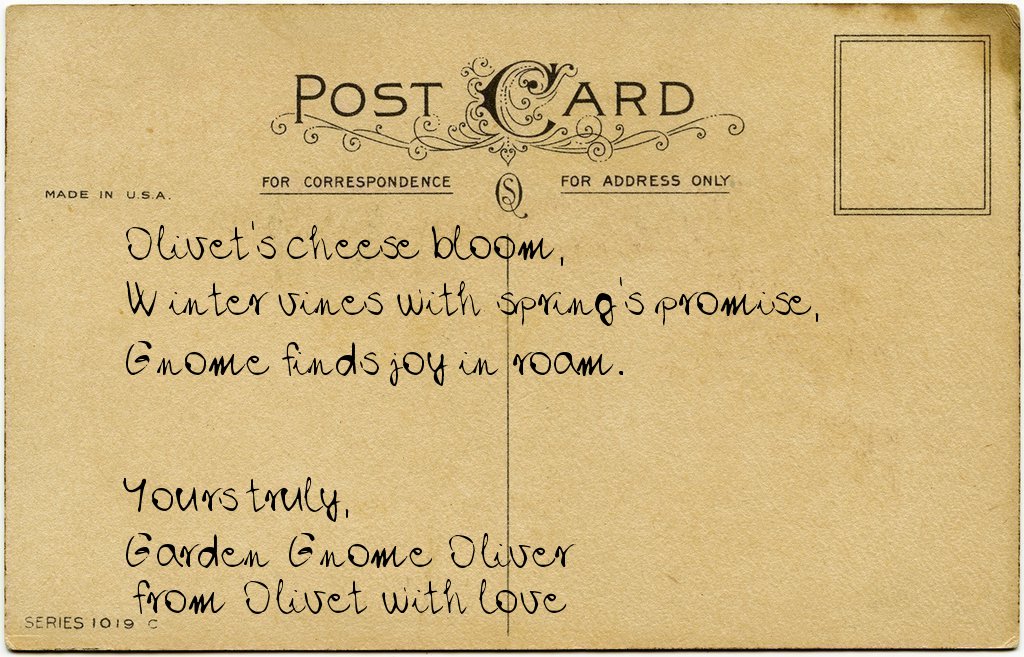 POST CARD
FOR CORRESPONDENCE
FOR ADDRESS ONLY
MADE IN U.S.A.
Olivet's cheese bloom,
Winter vines with spring's promise,
Gnome finds joy in roam.
Yours truly,
Garden Gnome Oliver
from Olivet with love
SERIES 1019 C